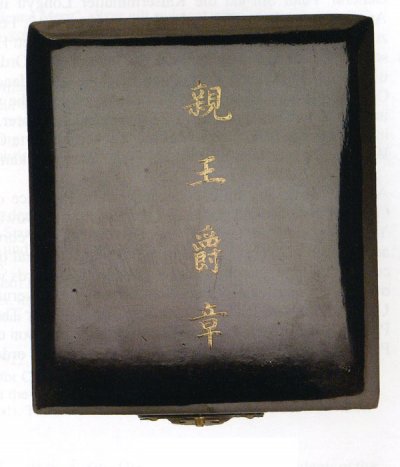 親王爵章